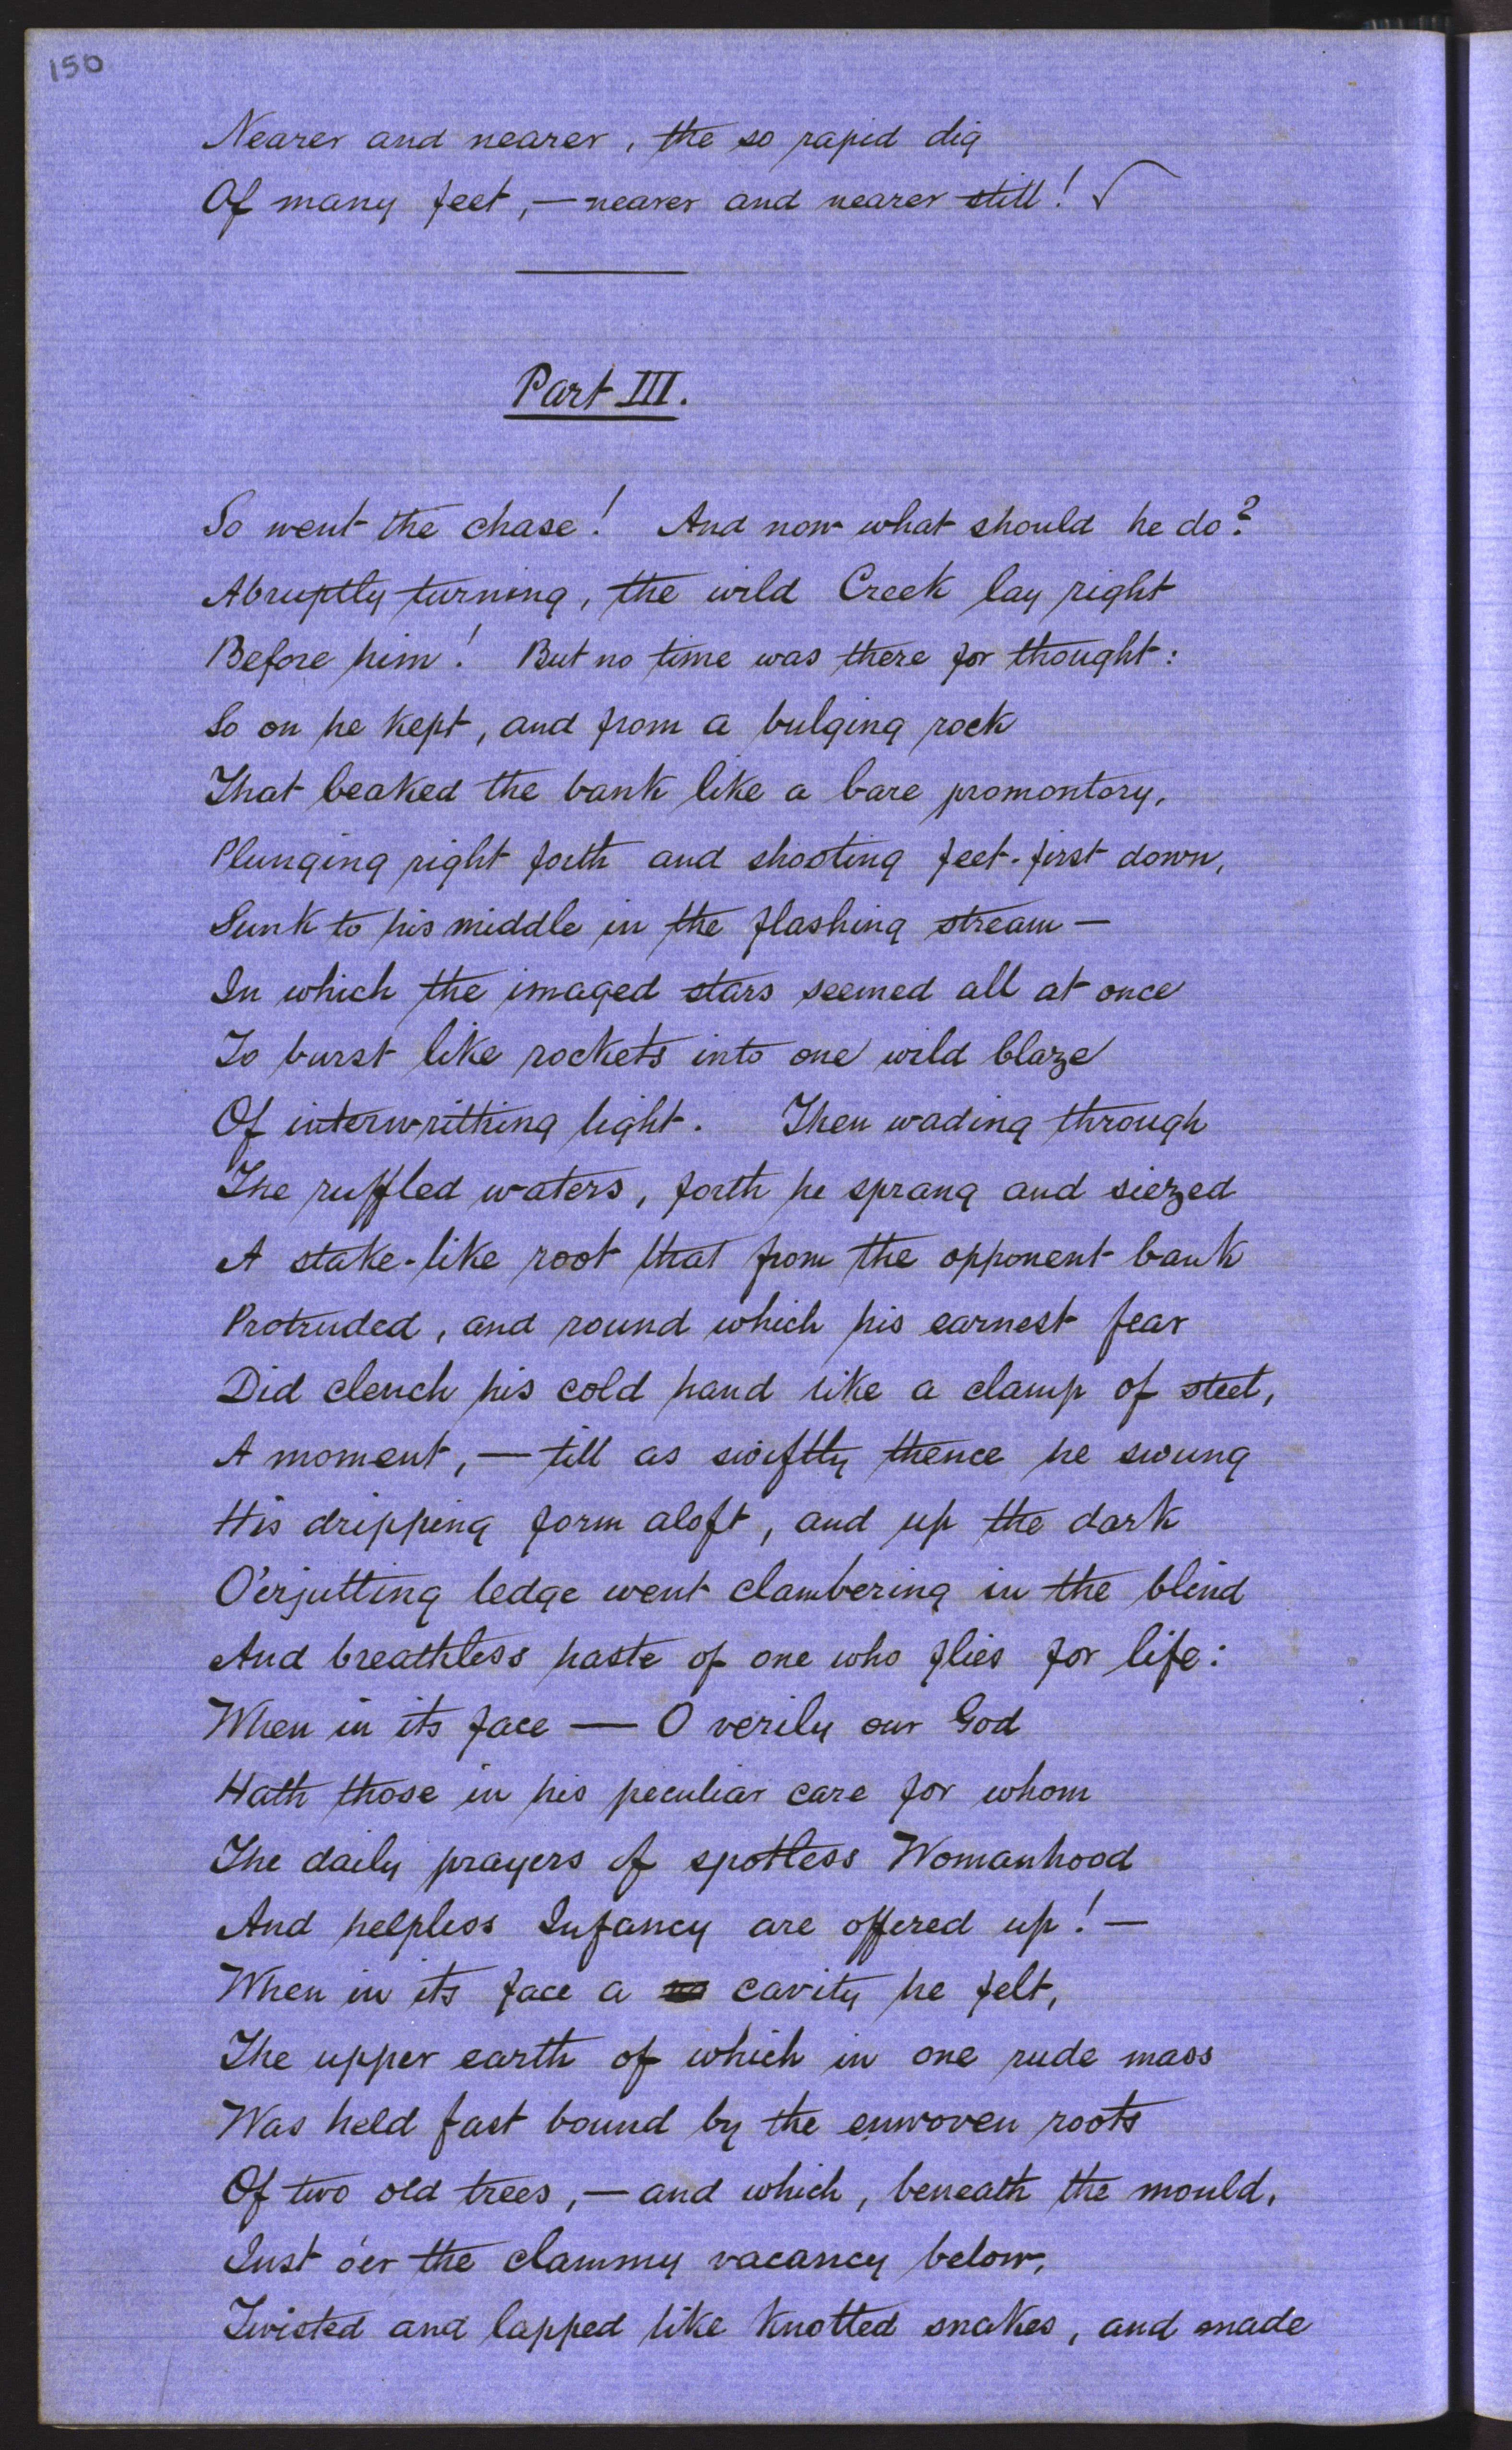 150
Nearer and nearer, the so rapid dig
Of many feet,—nearer and nearer still!
Part III.
So went the chase! And now what should he do?
Abruptly turning, the wild Creek lay right
Before him! But no time was there for thought:
So on he kept, and from a bulging rock
That beaked the bank like a bare promontory,
Plunging right forth and shooting feet-first down,
Sunk to his middle in the flashing stream—
In which the imaged stars seemed all at once
To burst like rockets into one wild blaze
Of interwrithing light. Then wading through
The ruffled waters, forth he sprang and siezed
A stake-like root that from the opponent bank
Protruded, and round which his earnest fear
Did clench his cold hand like a clamp of steel,
A moment,—till as swiftly thence he swung
His dripping form aloft, and up the dark
O'erjutting ledge went clambering in the blind
And breathless haste of one who flies for life:
When in its face—O verily our God
Hath those in his peculiar care for whom
The daily prayers of spotless Womanhood
And helpless Infancy are offered up!—
When in its face a cavity he felt,
The upper earth of which in one rude mass
Was held fast bound by the enwoven roots
Of two old trees,—and which, beneath the mould,
Just o'er the clammy vacancy below,
Twisted and lapped like knotted snakes, and made